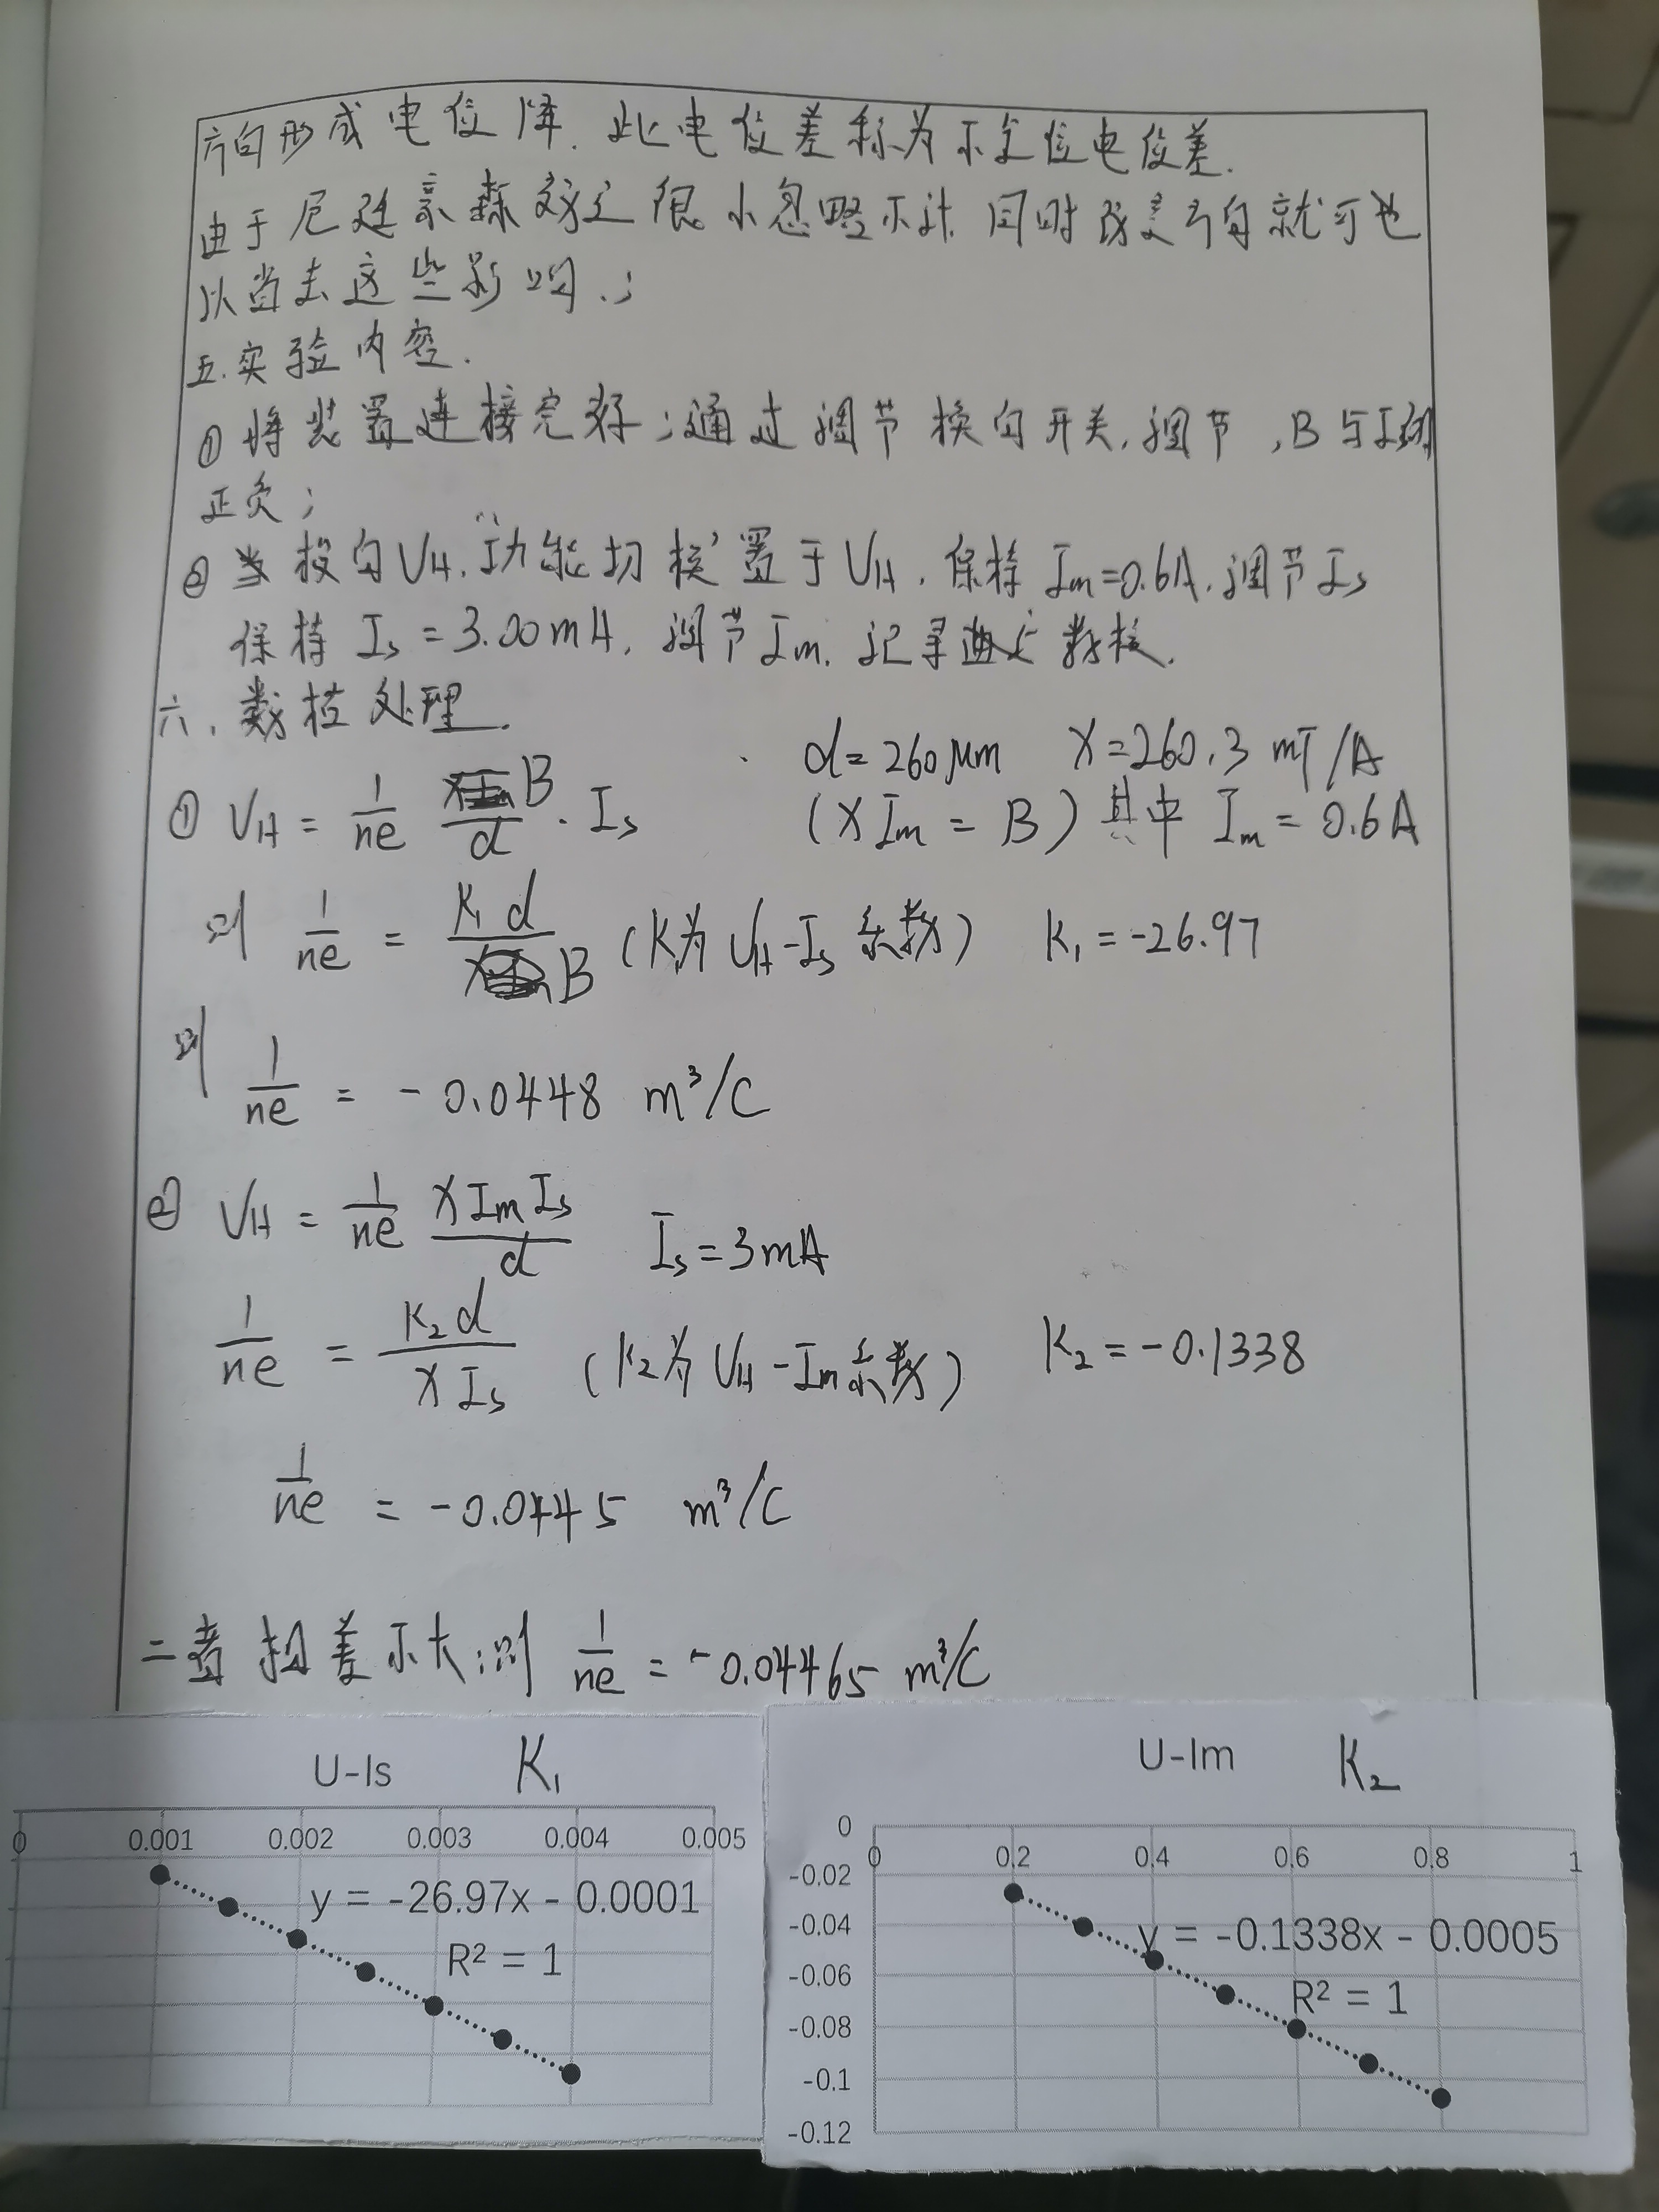 方向形成电位降.此电位差称为不定位电位差.
由于尼廷豪森效应很小忽略不计.同时改变方向就可也
以当去这些影响.;
五.实验内容.
① 将装置连接完好;通过调节换向开关,调节,B与I的
正负;
② 当投向VH,功能切换置于VH.保持Im=0.6A.调节Is
保持 Is=3.00mA,调节Im.记录数据.
六.数据处理.
d=260μm X=260.3 mT/A
① VH = 1/ne B/d · Is (XIm = B) 其中 Im = 0.6A
则 1/ne = K1d/B (K1为 VH-Is 系数) K1=-26.97
则 1/ne = -0.0448 m³/C
② VH = 1/ne XImIs/d Is=3mA
1/ne = K2d/XIs (K2为 VH-Im系数) K2=-0.1338
1/ne = -0.0445 m³/C
二者相差不大;则 1/ne = -0.04465 m³/C
U-Is K1
0 0.001 0.002 0.003 0.004 0.005
y = -26.97x - 0.0001
R² = 1
U-Im K2
0
0 0.2 0.4 0.6 0.8 1
-0.02
-0.04
y = -0.1338x - 0.0005
-0.06
R² = 1
-0.08
-0.1
-0.12